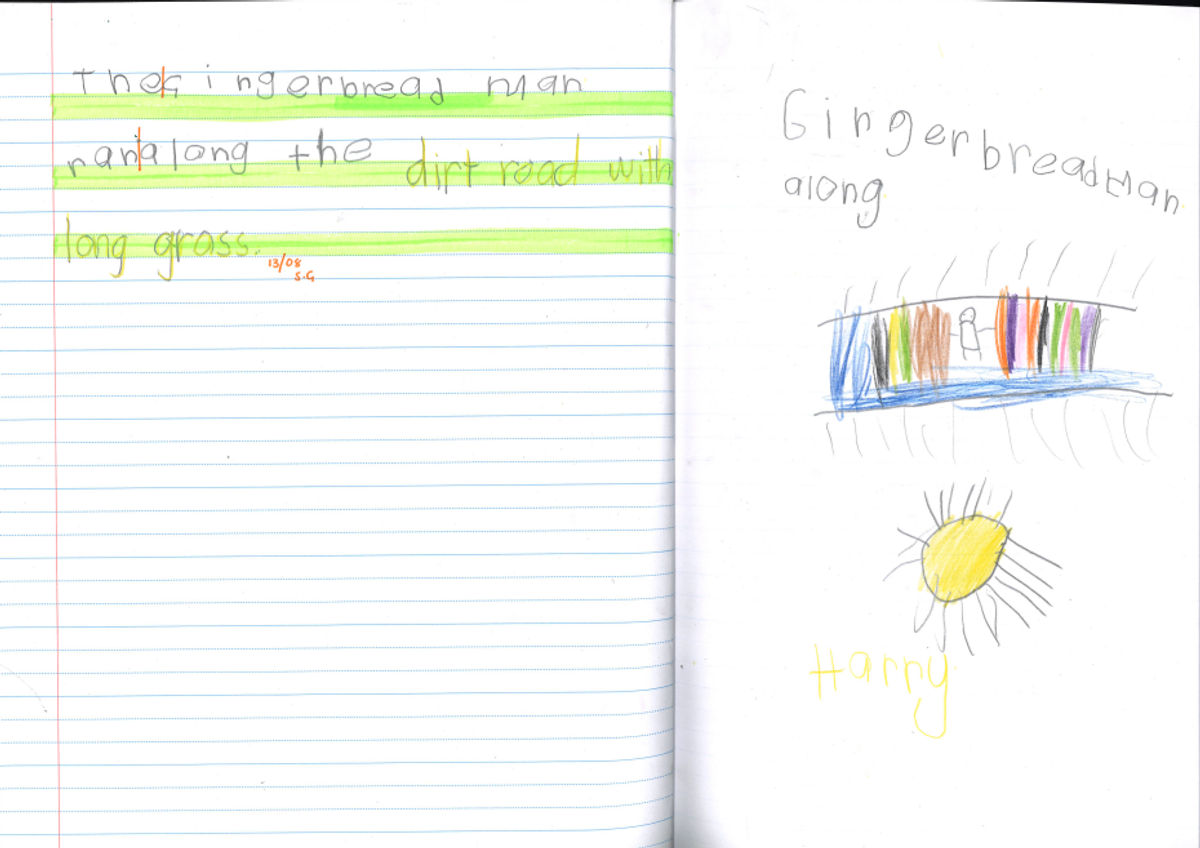 The Gingerbread Man
ran along the dirt road with
long grass.
13/08
S.G
Gingerbread Man
along
Harry